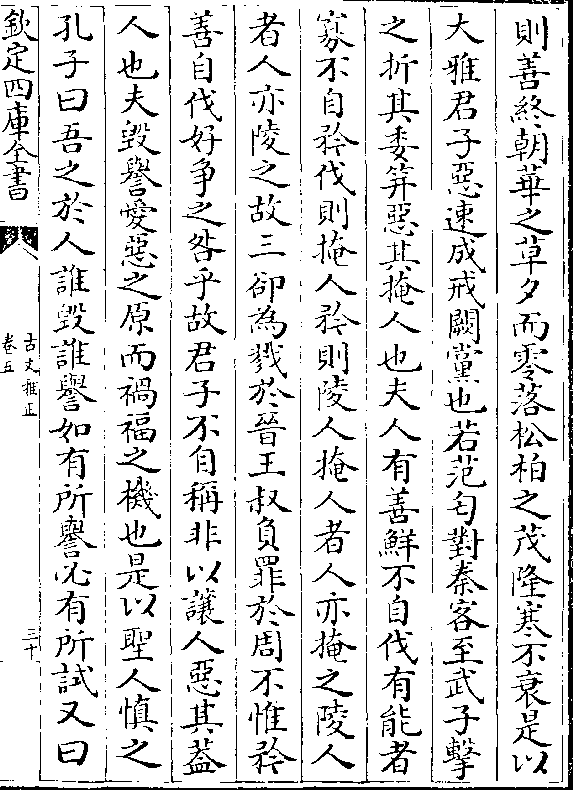 則善終朝華之草夕而零落松柏之茂隆寒不衰是以
大雅君子惡速成戒闕黨也若范匄對秦客至武子擊
之折其委笄惡其掩人也夫人有善鮮不自伐有能者
寡不自矜伐則掩人矜則陵人掩人者人亦掩之陵人
者人亦陵之故三郤為戮於晉王叔負罪於周不惟矜
善自伐好爭之咎乎故君子不自稱非以讓人惡其葢
人也夫毀譽愛惡之原而禍福之機也是以聖人慎之
孔子曰吾之於人誰毀誰譽如有所譽必有所試又曰
欽定四庫全書
古文雅正
卷五
三十